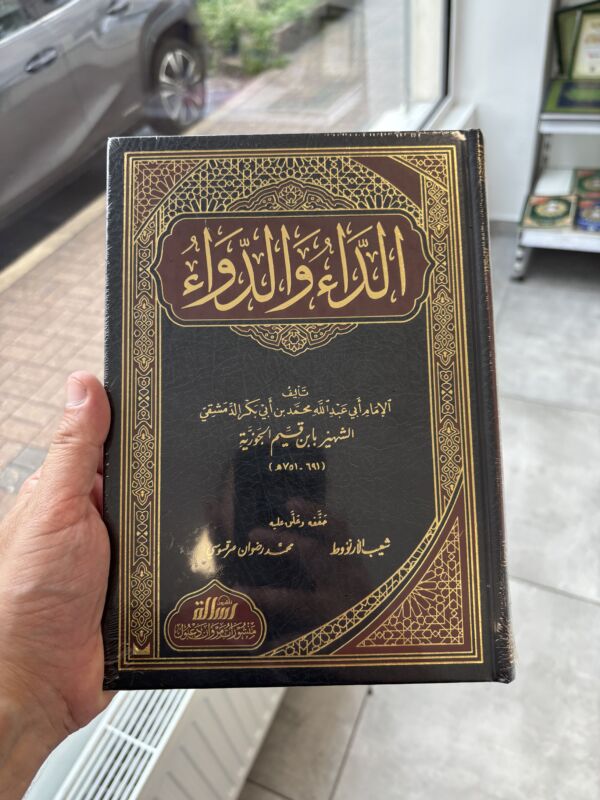 الدَّاءُ وَالدَّوَاءُ
تَأليفُ
الإمَام أبي عَبْد اللَّه محمَّد بن أبي بَكر الدّمَشقيّ
الشهير بابن قيم الجَوزيَّة
(٦٩١ - ٧٥١ هـ)
حَقَّقه وعَلَّق عليه
شعيب الأرنؤوط محمّد رضوان عرقسوسي
رسالة
منشورات مروان دعبول